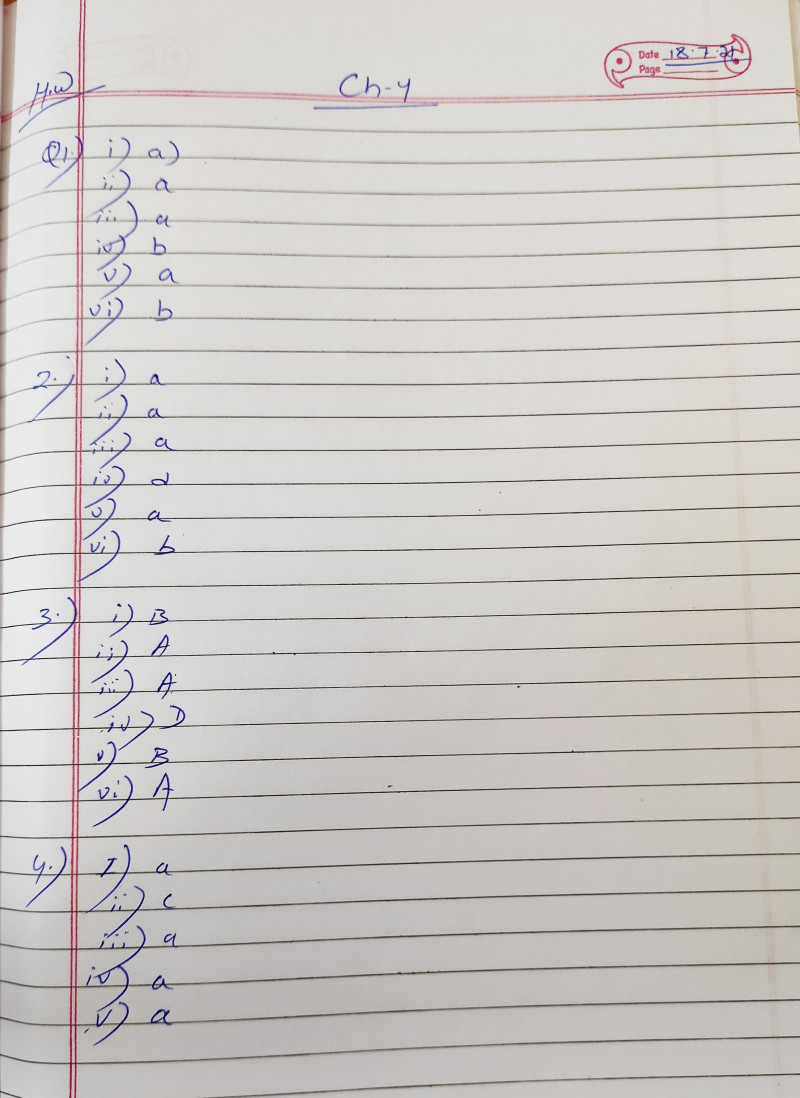 Date 18.7.21
Page
H.W
Ch-4
Q1.) i) a)
ii) a
iii) a
iv) b
v) a
vi) b
2.) i) a
ii) a
iii) a
iv) d
v) a
vi) b
3.) i) B
ii) A
iii) A
iv) D
v) B
vi) A
4.) I) a
ii) c
iii) a
iv) a
v) a